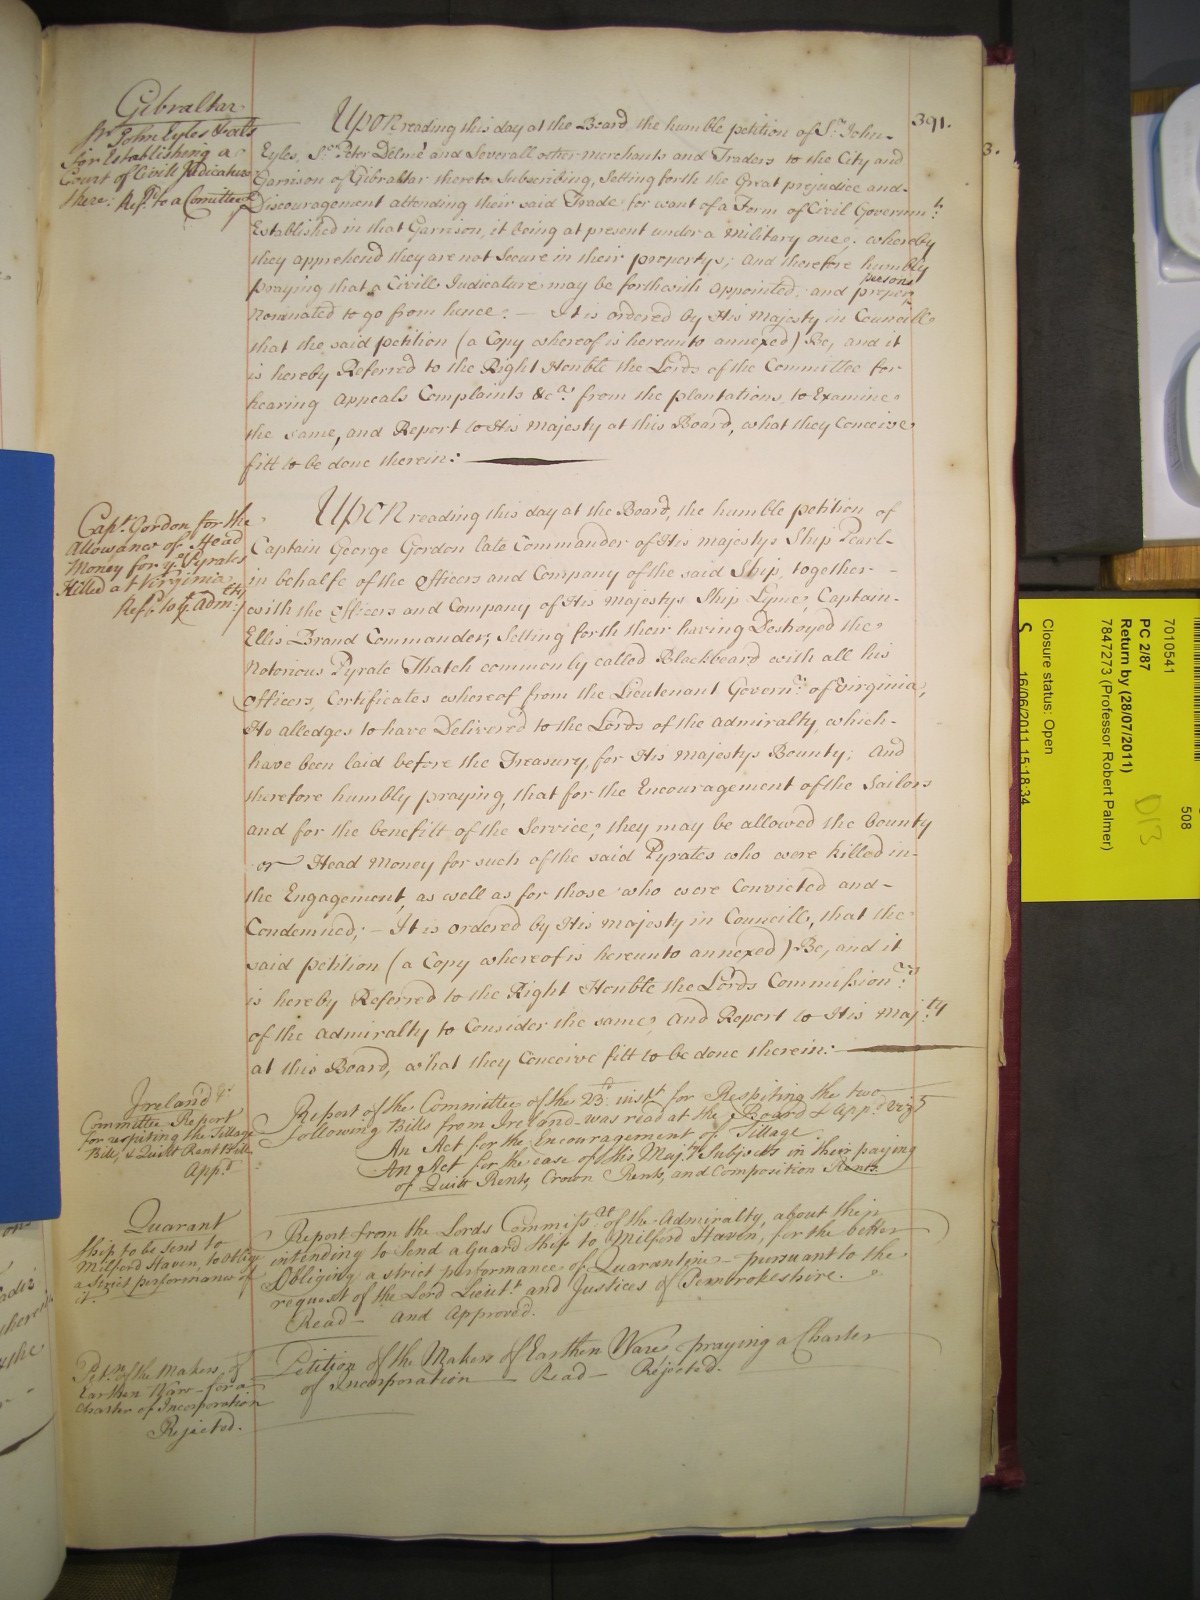 391.
Gibraltar.
Sr. John Eyles & als
for Establishing a
Court of Civill Judicature
there: Ref.d to a Comittee
Upon reading this day at the Board, the humble petition of Sr. John-
Eyles, Sr. Peter Delmé and Severall other Merchants and Traders to the City and
Garrison of Gibraltar thereto Subscribing, Setting forth the Great prejudice and-
Discouragement attending their said Trade for want of a Form of Civil Governmt:
Established in that Garrison, it being at present under a Military one; whereby
they apprehend they are not Secure in their propertys; And therefore humbly
praying that a Civill Judicature may be forthwith appointed, and proper persons
Nominated to go from hence: - It is ordered by His Majesty in Councill
that the said petition (a Copy whereof is hereunto annexed) Be, and it
is hereby Referred to the Right Honble the Lords of the Committee for
hearing Appeals Complaints &ca. from the plantations, to Examine
the same, and Report to His Majesty at this Board, what they Conceive
fitt to be done therein:
Capt. Gordon for the
Allowance of Head
Money for ye. Pyrates
Killed at Virginia
Ref.d to ye. Admity
Upon reading this day at the Board, the humble petition of
Captain George Gordon late Commander of His Majestys Ship Pearl-
in behalfe of the Officers and Company of the said Ship, together-
with the Officers and Company of His Majestys Ship Lyme, Captain-
Ellis Brand Commander; Setting forth their having Destroyed the
Notorious Pyrate Thatch commonly called Blackbeard with all his
Officers, Certificates whereof from the Lieutenant Governr. of Virginia,
He alledges to have Delivered to the Lords of the Admiralty, which-
have been laid before the Treasury, for His Majestys Bounty; And
therefore humbly praying, that for the Encouragement of the Sailors
and for the benefitt of the Service, they may be allowed the bounty
or Head Money for such of the said Pyrates who were killed in-
the Engagement, as well as for those who were Convicted and-
Condemned; - It is ordered by His Majesty in Councill, that the
said petition (a Copy whereof is hereunto annexed) Be, and it
is hereby Referred to the Right Honble the Lords Commissionrs:
of the Admiralty to Consider the same, And Report to His Majty:
at this Board, what they Conceive fitt to be done therein:
Ireland
Committee Report
for respiting the Tillage
Bill, & Quitt Rent Bill
App.d
Report of the Committee of the 23d. instt for Respiting the two
following Bills from Ireland - was read at the Board & App.d Vizt
An Act for the Encouragement of Tillage
An Act for the ease of His Majts Subjects in their paying
of Quitt Rents, Crown Rents, and Composition Rents.
Quarant
Ship to be sent to
Milford Haven, to oblige
a strict performance of
it.
Report from the Lords Commissrs of the Admiralty, about their
intending to Send a Guard Ship to Milford Haven, for the better
Obliging a strict performance of Quarantine - pursuant to the
request of the Lord Lieutt. and Justices of Pembrokeshire.
Read - and Approved.
Petn. of the Makers of
Earthen Ware - for a
Charter of Incorporation
Rejected.
Petition of the Makers of Earthen Ware - praying a Charter
of Incorporation - Read - Rejected.
3.
508
7010541
PC 2/87
Return by (28/07/2011)
7847273 (Professor Robert Palmer)
D13
Closure status: Open
16/06/2011 15:18:34